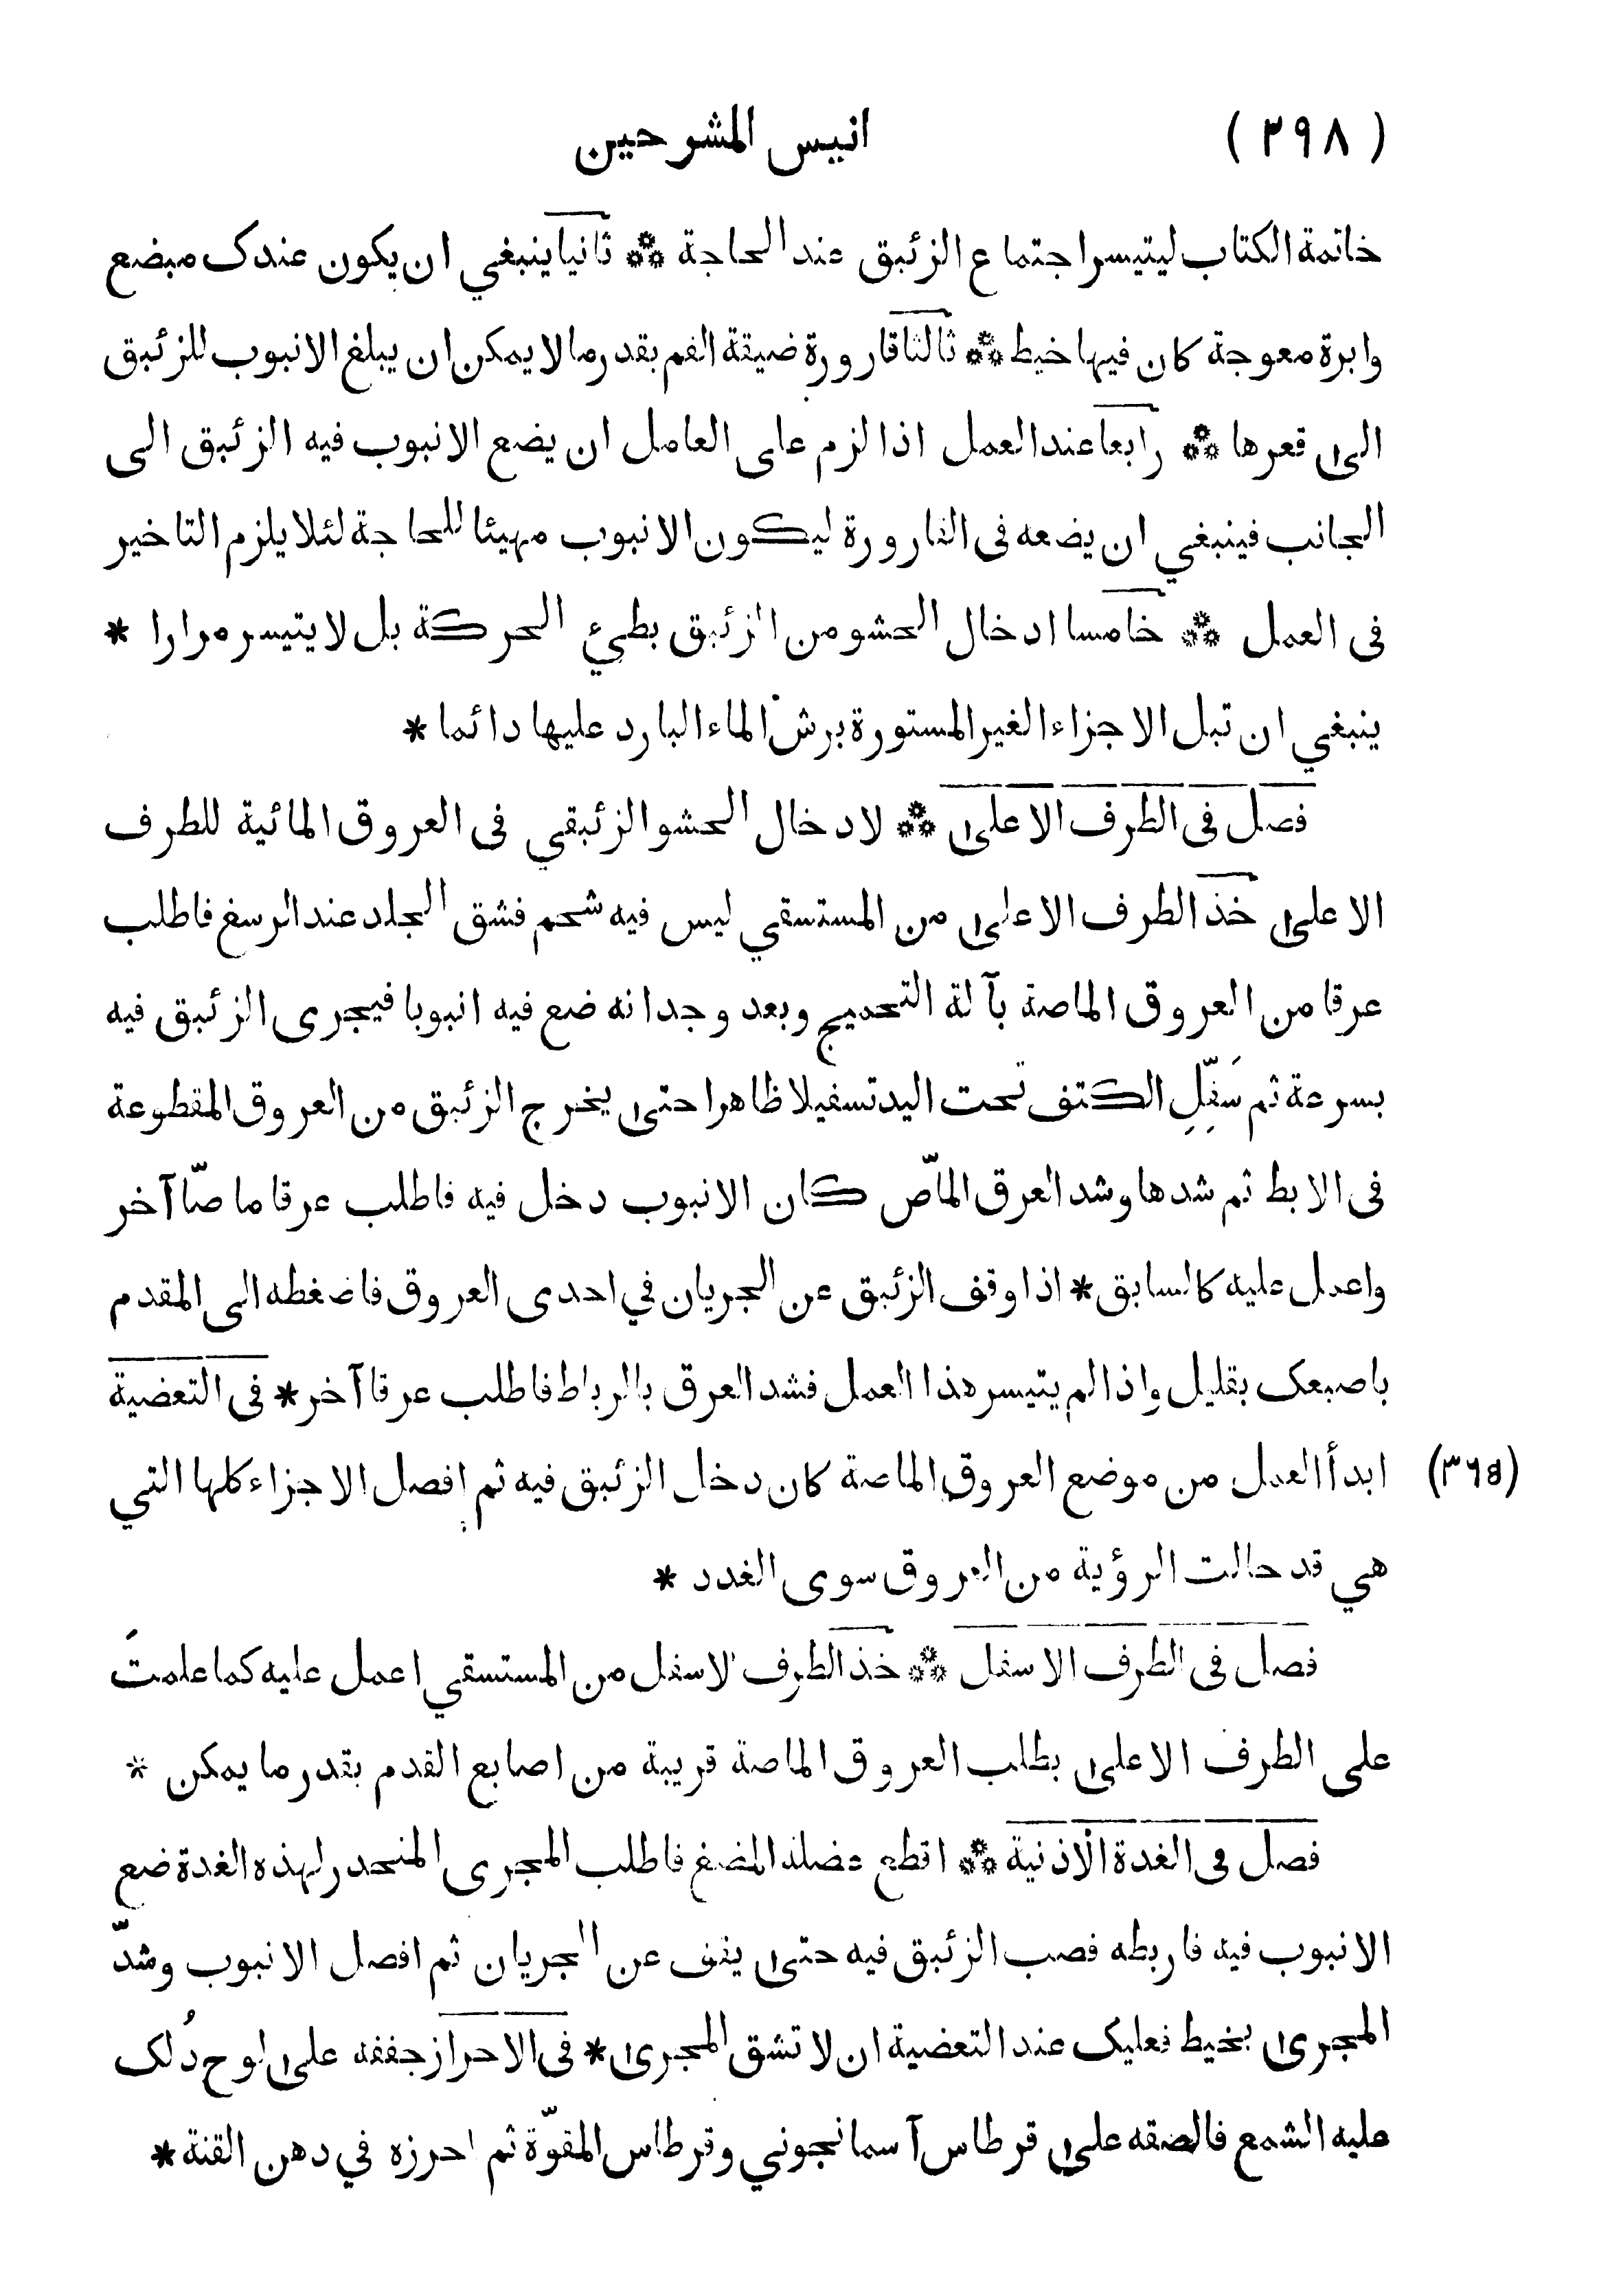 (٢٩٨) انيس المشرحين
خاتمة الكتاب ليتيسر اجتماع الزئبق عند الحاجة ⁂ ثانيا ينبغي ان يكون عندك مبضع
وابرة معوجة كان فيها خيط ⁂ ثالثا قارورة ضيقة الفم بقدر ما لا يمكن ان يبلغ الانبوب للزئبق
الى قعرها ⁂ رابعا عند العمل اذا لزم على العامل ان يضع الانبوب فيه الزئبق الى
الجانب فينبغي ان يضعه فى القارورة ليكون الانبوب مهيئا للحاجة لئلا يلزم التاخير
فى العمل ⁂ خامسا ادخال الحشو من الزئبق بطيء الحركة بل لا يتيسر مرارا *
ينبغي ان تبل الاجزاء الغير المستورة برش الماء البارد عليها دائما *
فصل فى الطرف الاعلى ⁂ لادخال الحشو الزئبقي فى العروق المائية للطرف
الاعلى خذ الطرف الاعلى من المستسقي ليس فيه شحم فشق الجلد عند الرسغ فاطلب
عرقا من العروق الماصة بآلة التحميج وبعد وجدانه ضع فيه انبوبا فيجرى الزئبق فيه
بسرعة ثم سَفِّلِ الكتف تحت اليد تسفيلا ظاهرا حتى يخرج الزئبق من العروق المقطوعة
فى الابط ثم شدها وشد العرق الماصّ كان الانبوب دخل فيه فاطلب عرقا ماصّا آخر
واعمل عليه كالسابق * اذا وقف الزئبق عن الجريان في احدى العروق فاضغطه الى المقدم
باصبعك بقليل واذا لم يتيسر هذا العمل فشد العرق بالرباط فاطلب عرقا آخر * فى التعضية
ابدأ العمل من موضع العروق الماصة كان دخل الزئبق فيه ثم افصل الاجزاء كلها التي (٣٦٥)
هي قد حالت الرؤية من العروق سوى الغدد *
فصل فى الطرف الاسفل ⁂ خذ الطرف الاسفل من المستسقي اعمل عليه كما علمتَ
على الطرف الاعلى بطلب العروق الماصة قريبة من اصابع القدم بقدر ما يمكن *
فصل فى الغدة الاذنية ⁂ اقطع عضلة المضغ فاطلب المجرى المنحدر لهذه الغدة ضع
الانبوب فيه فاربطه فصب الزئبق فيه حتى يقف عن الجريان ثم افصل الانبوب وشدّ
المجرى بخيط فعليك عند التعضية ان لا تشق المجرى * فى الاحراز جففه على لوح دُلك
عليه الشمع فالصقه على قرطاس آسمانجوني وقرطاس المقوّة ثم احرزه في دهن القنة *